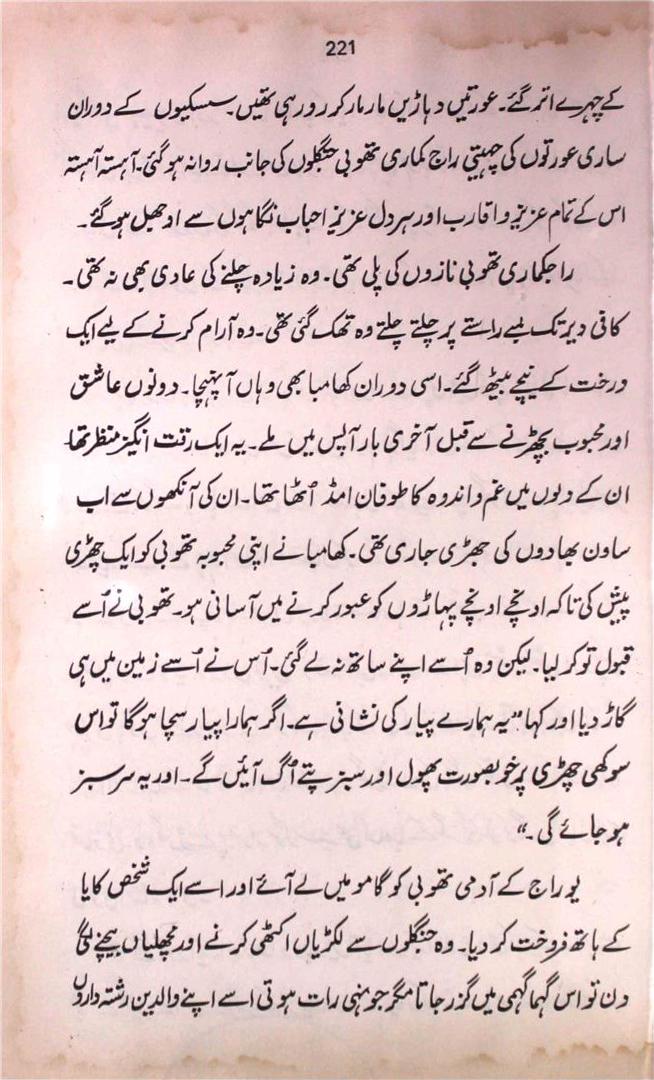 221
کے چہرے اتر گئے۔ عورتیں دہاڑیں مار مار کر رو رہی تھیں۔ سسکیوں کے دوران
ساری عورتوں کی چہیتی راج کماری تھوبی جنگلوں کی جانب روانہ ہو گئی۔ آہستہ آہستہ
اس کے تمام عزیز و اقارب اور ہر دل عزیز احباب نگاہوں سے اوجھل ہو گئے۔
راجکماری تھوبی نازوں کی پلی تھی۔ وہ زیادہ چلنے کی عادی بھی نہ تھی۔
کافی دیر تک لمبے راستے پر چلتے چلتے وہ تھک گئی تھی۔ وہ آرام کرنے کے لیے ایک
درخت کے نیچے بیٹھ گئے۔ اسی دوران کھامبا بھی وہاں آ پہنچا۔ دونوں عاشق
اور محبوب بچھڑنے سے قبل آخری بار آپس میں ملے۔ یہ ایک رقت انگیز منظر تھا
ان کے دلوں میں غم و اندوہ کا طوفان امڈ اُٹھا تھا۔ ان کی آنکھوں سے اب
ساون بھادوں کی جھڑی جاری تھی۔ کھامبا نے اپنی محبوبہ تھوبی کو ایک چھڑی
پیش کی تاکہ اونچے اونچے پہاڑوں کو عبور کرنے میں آسانی ہو۔ تھوبی نے اُسے
قبول تو کر لیا۔ لیکن وہ اُسے اپنے ساتھ نہ لے گئی۔ اُس نے اُسے زمین میں ہی
گاڑ دیا اور کہا "یہ ہمارے پیار کی نشانی ہے۔ اگر ہمارا پیار سچا ہوگا تو اس
سوکھی چھڑی پر خوبصورت پھول اور سبز پتے اُگ آئیں گے۔ اور یہ سرسبز
ہو جائے گی۔"
یوراج کے آدمی تھوبی کو گامو میں لے آئے اور اسے ایک شخص کایا
کے ہاتھ فروخت کر دیا۔ وہ جنگلوں سے لکڑیاں اکٹھی کرنے اور مچھلیاں بیچنے لگی
دن تو اس گہما گہمی میں گزر جاتا مگر جونہی رات ہوتی اسے اپنے والدین رشتہ داروں